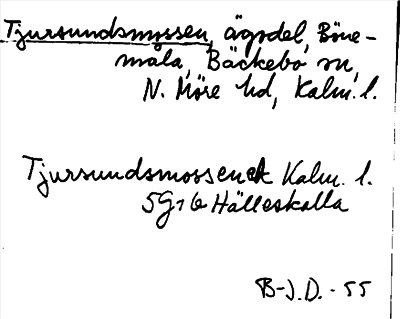 Tjursundsmossen, ägodel, Böne-
måla, Bäckebo sn,
N. Möre hd, Kalm. l.
Tjursundsmossen Kalm. l.
5G1b Hälleskalla
B-J.D. - 55